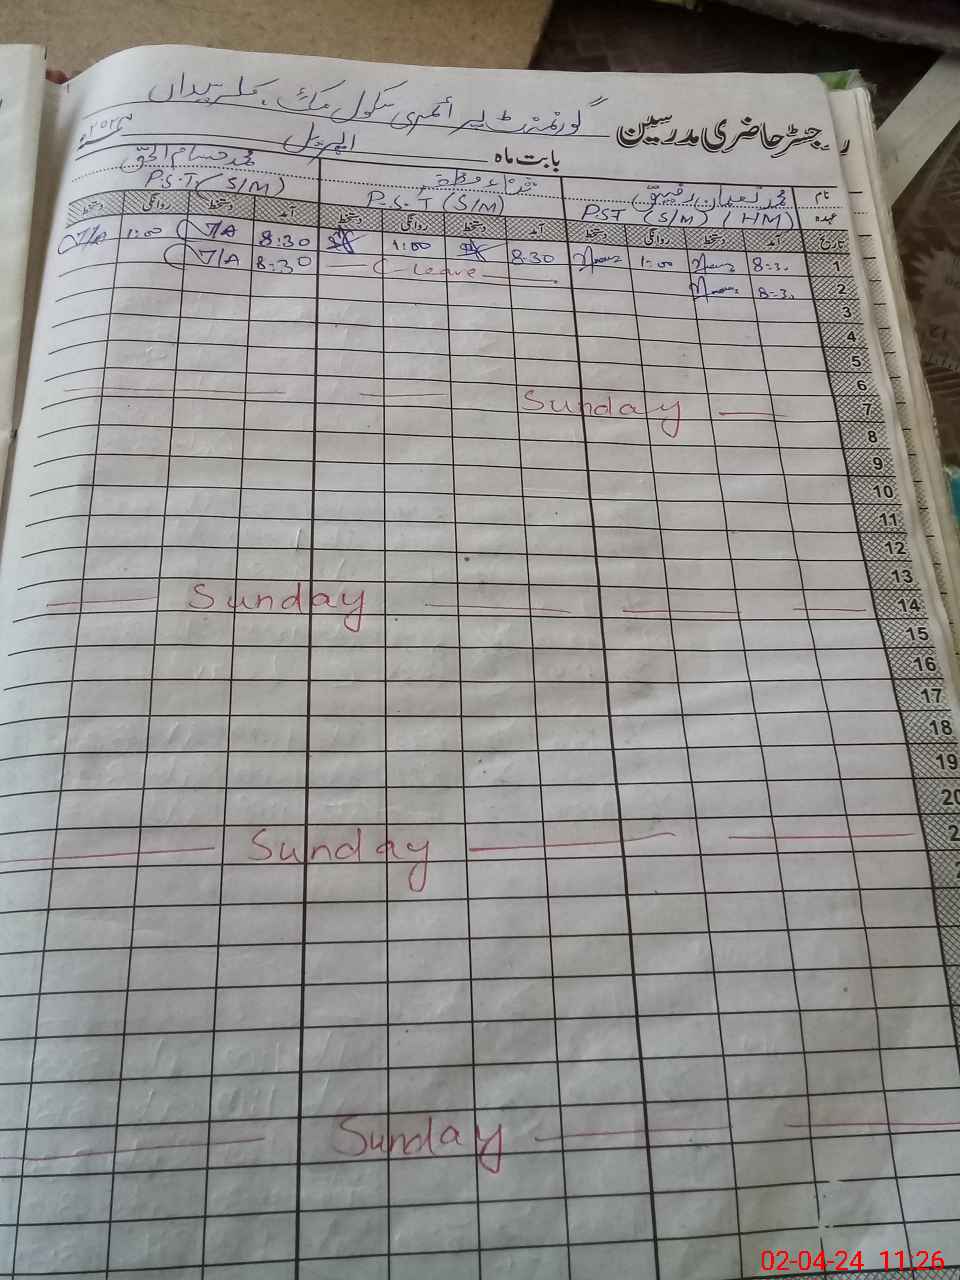 رجسٹر حاضری مدرسین
گورنمنٹ پرائمری سکول
بابت ماہ اپریل
نام محمد
محمد حسام الحق
عہدہ PST (S/M) (HM) P.S.T (S/M) P.S.T (S/M)
تاریخ آمد دستخط روانگی دستخط آمد دستخط روانگی دستخط آمد دستخط روانگی دستخط
1 8:30 1:00 8:30 1:00 8:30 T/A 1:00 T/A
2 8:30 C-Leave 8:30 T/A
3
4
5
6
7 Sunday
8
9
10
11
12
13
14 Sunday
15
16
17
18
19
20
Sunday
Sunday
02-04-24 11:26